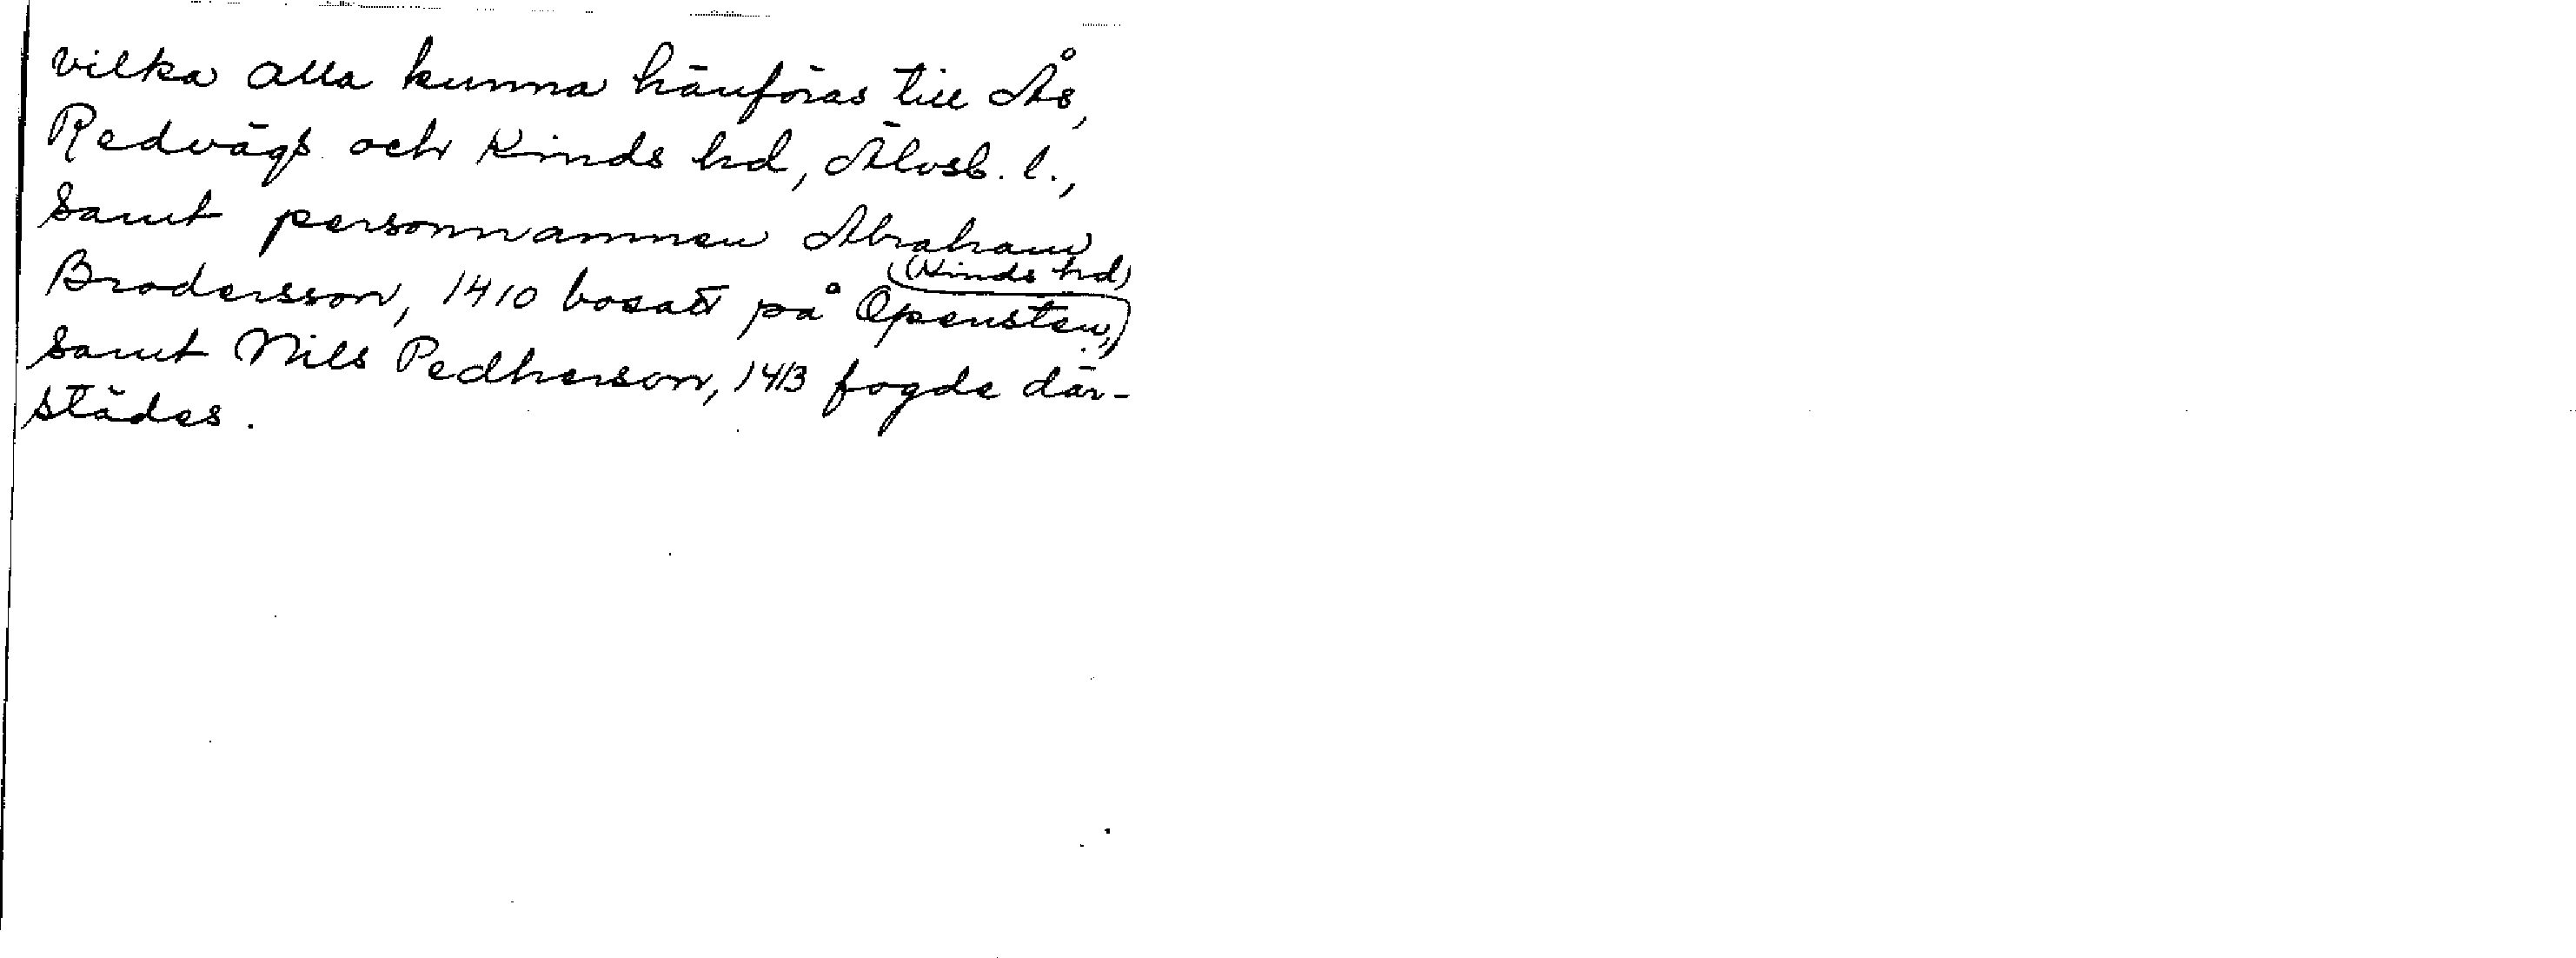 vilka alla kunna hänföras till Ås,
Redvägs och Kinds hd, Älvsb. l.,
samt personnamnen Abraham
Brodersson, 1410 bosatt på Opensten (Kinds hd),
samt Nils Pedherson, 1413 fogde där-
städes.